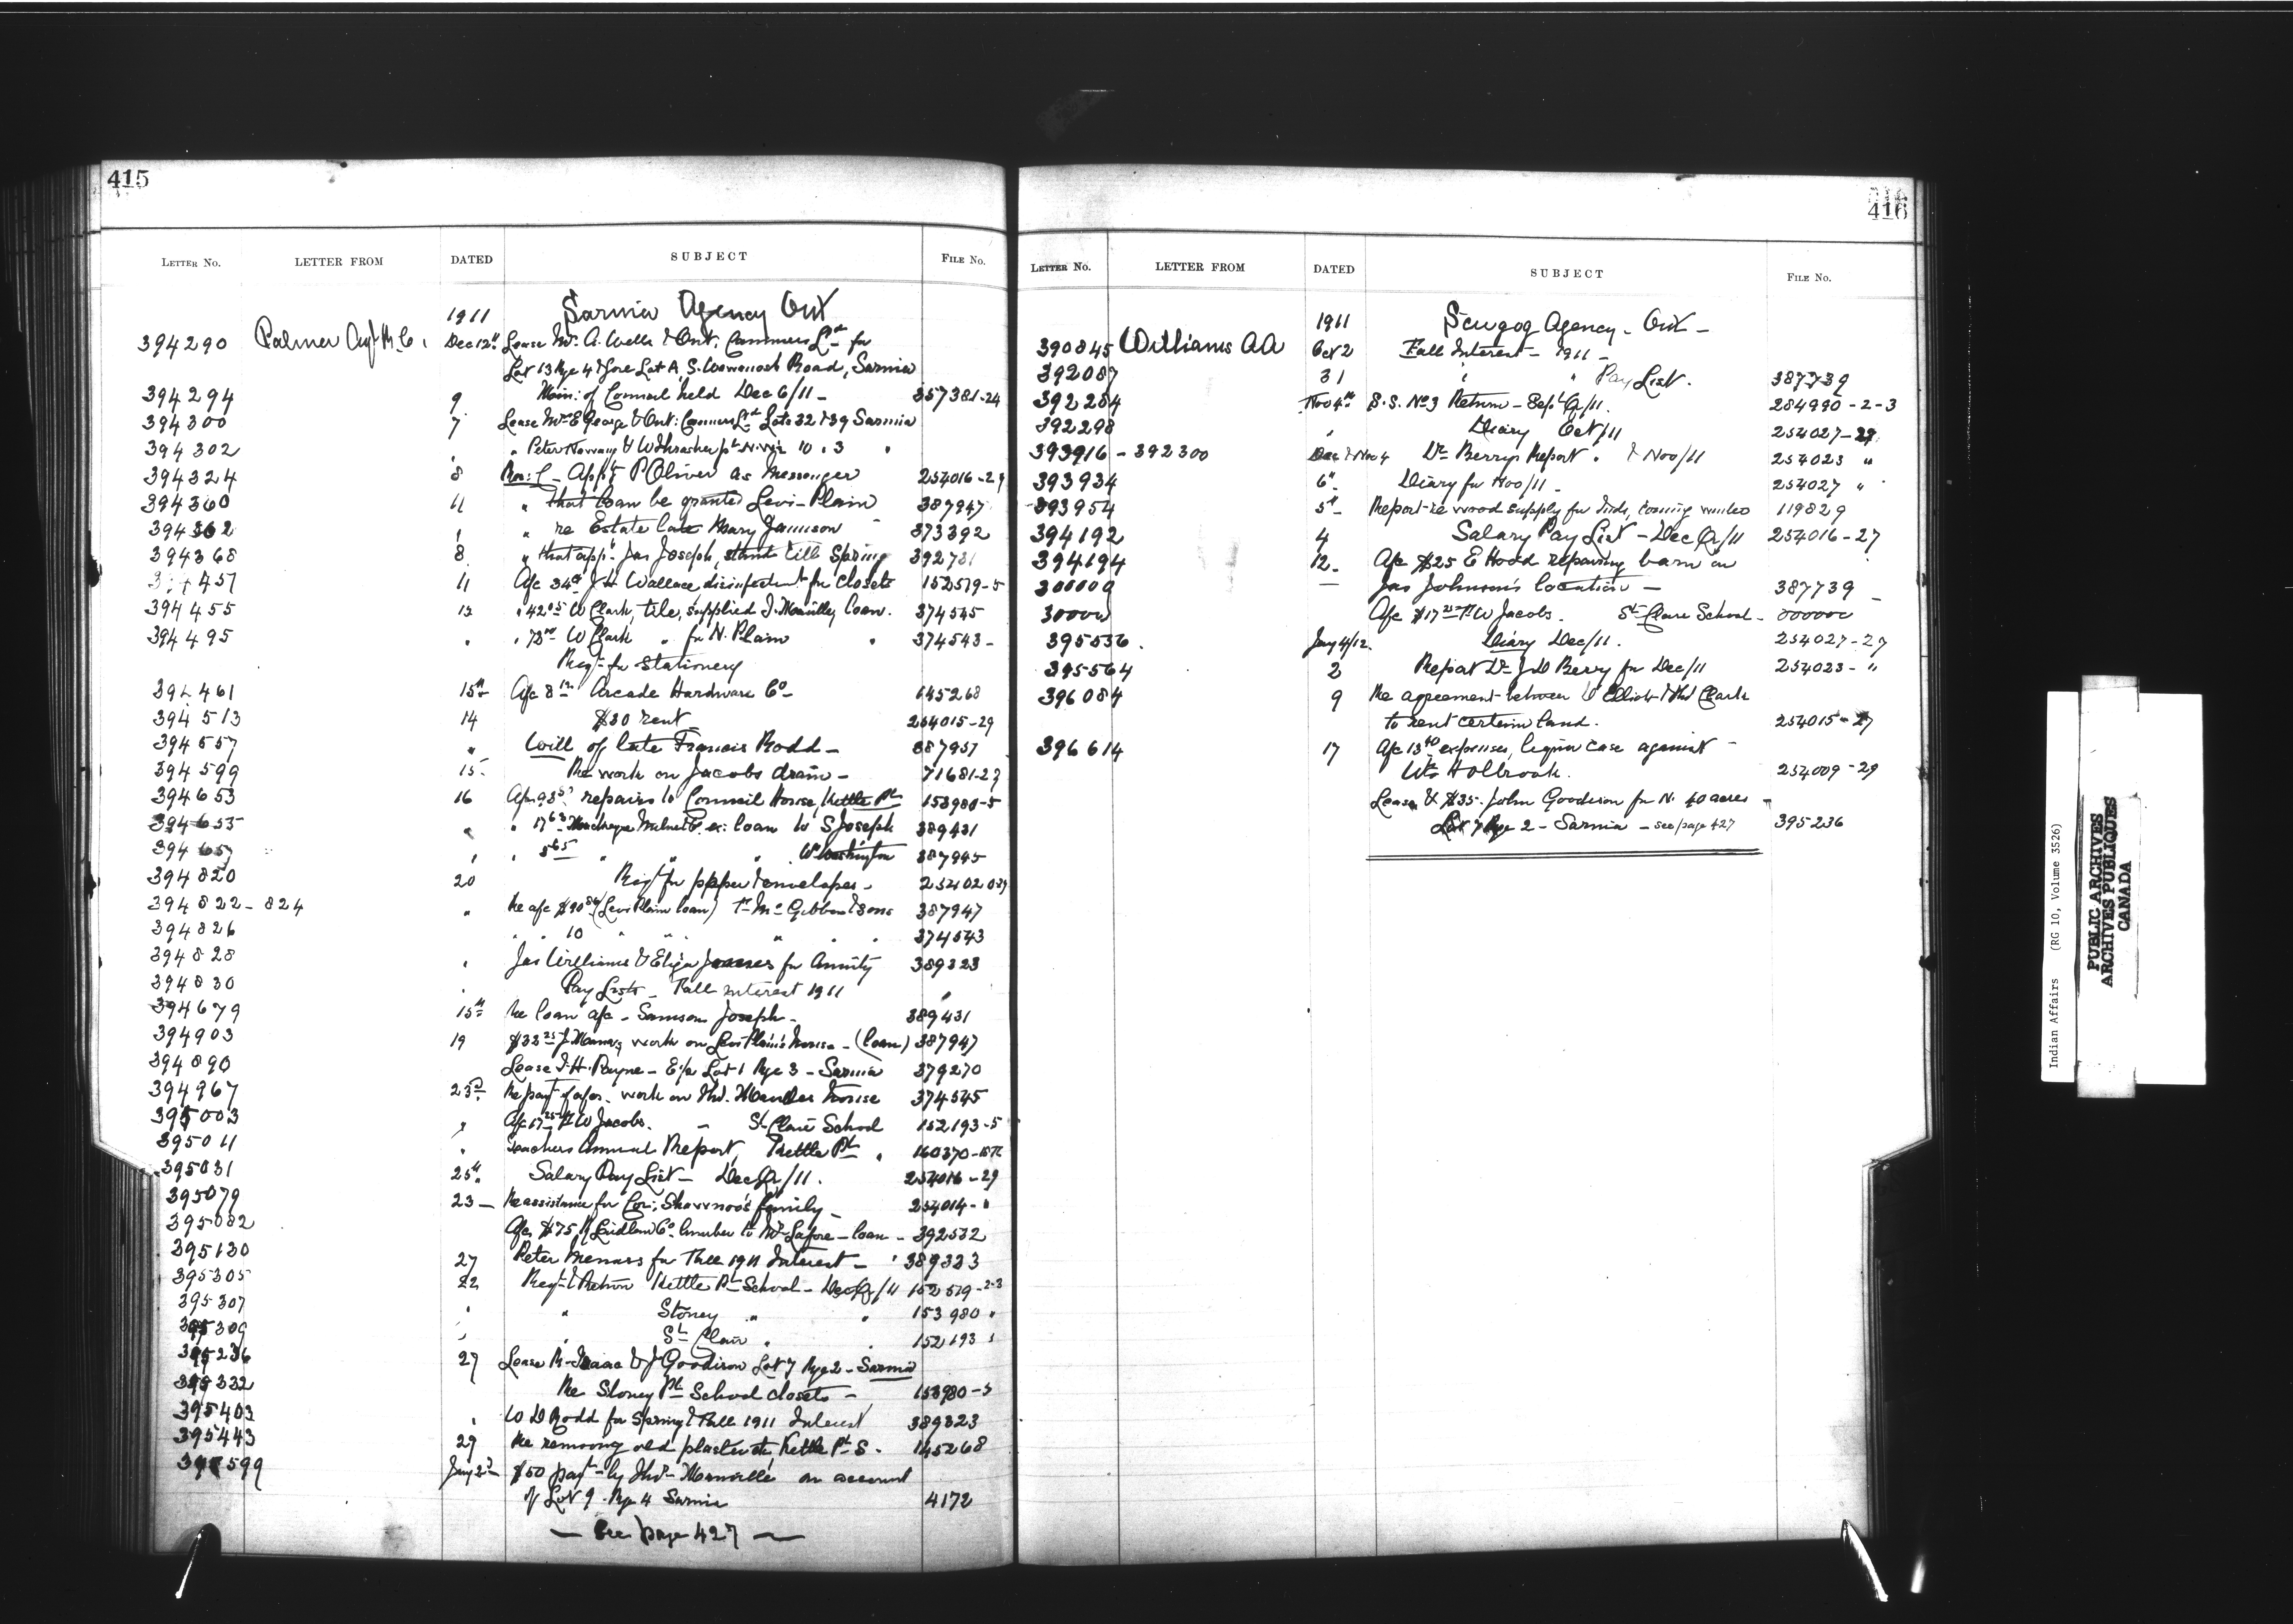 415
LETTER NO. LETTER FROM DATED SUBJECT FILE No.
1911 Sarnia Agency Ont
394290 Palmer Dec 12th Lease Mrs. A. Wells & Ont. Canners Ltd for
Lot 13 Rge 4 & fore Lot A, S. Wawanosh Road, Sarnia
394294 9 Min: of Council held Dec 6/11 - 357381-24
394300 7 Lease Mrs E George & Ont: Canners Ltd Lots 32 & 39 Sarnia
394302 " Peter Nahwang & W Thrasher pt N.W¼ 10 " 3 "
394324 8 Res: C - App't P Oliver as Messenger 254016-29
394360 11 " that loan be granted Levi Plain 387947
394362 " " re Estate late Mary Jamison 373392
394368 8 " that app. Jas Joseph, stand till Spring 392731
457 11 A/c 34 J H Wallace, disinfectant for closets 152519-5
394455 12 " 42.05 W Clark, tile, supplied loan. 374545
394495 " " W Clark " for N. Plain " 374543-
Reqn for Stationery
394461 15th A/c 8 Arcade Hardware Co 145268
394513 14 $30 rent 254015-29
394557 " Will of late Francis Rodd - 387957
394599 15 Re work on Jacobs drain - 71681-29
394653 16 repairs to Council House, Kettle Pt 153980-5
394655 " " 17 loan to S Joseph 389431
394657 " " 5.65 " " " W Washington 387945
394820 20 Reqn for paper & envelopes - 254020-29
394822-824 " Re a/c $90 (Levi Plain loan) Gibbon & Sons 387947
394826 " " 10 " " " " " 374543
394828 " Jas Williams & Eliza for Annuity 389323
394830 " Pay Lists - Fall interest 1911 "
394679 15th Re loan a/c - Samson Joseph - 389431
394903 19 $33.25 work on Levi Plain's house - (loan) 387947
394890 Lease H. Payne - E½ Lot 1 Rge 3 - Sarnia 379270
394967 23rd Re payt of a/cs. work on house 374545
395003 " A/c 17.25 W Jacobs. - St Clair School 152193-5
395011 " Teachers Annual Report, Kettle Pt " 160370
395031 25th Salary Pay List - Dec Qr/11. 254016-29
395079 23 - Re assistance for family - 254014- "
395082 A/c $75 Laidlaw Co. lumber to loan - 392532
395130 27 Peter Menass for Fall 1911 Interest - 389323
395305 22 Reqn & Return Kettle Pt School - Dec Qr/11 152519-2-3
395307 " " Stoney " " 153980 "
395309 " " St Clair " " 152193 "
395236 27 Lease R. Isaac & J Goodison Lot 7 Rge 2 - Sarnia
395332 Re Stoney Pt School closets - 153980-5
395403 " W D Rodd for Spring & Fall 1911 Interest 389323
395443 29 Re removing old plaster etc, Kettle Pt S. 145268
395599 Jany 2nd $50 payt by on account
of Lot 9 Rge 4 Sarnia 4172
— See page 427 —
416
LETTER NO. LETTER FROM DATED SUBJECT FILE No.
1911 Scugog Agency - Ont -
390845 Williams AA Oct 2 Fall Interest - 1911 -
392087 31 " " Pay List. 387739
392284 Nov 4th S.S. No 3 Return - Sept Qr/11. 284990-2-3
392298 " Diary Oct/11 254027-29
393916 - 392300 Dec & Nov 4 Dr Berry's Report " & Nov/11 254023 "
393934 6th Diary for Nov/11 - 254027 "
393954 5th Report re wood supply for Inds, coming winter 119829
394192 4 Salary Pay List - Dec Qr/11 254016-27
394194 12- A/c $25 E Hood repairing barn on
300000 — Jas Johnson's location - 387739
30000 A/c $17.25 W Jacobs. St Clair School - 000000
395536. Jany 4/12. Diary Dec/11. 254027-27
395564 2 Report Dr J D Berry for Dec/11 254023- "
396084 9 Re agreement between Elliott & Clark
to rent certain land. 254015-27
396614 17 A/c 13.40 expenses, liquor case against -
Wm Holbrook. 254009-29
Lease & $35. John Goodison for N. 40 acres -
Lot 7 Rge 2 - Sarnia - see page 427 395236
Indian Affairs (RG 10, Volume 3526)
PUBLIC ARCHIVES
ARCHIVES PUBLIQUES
CANADA